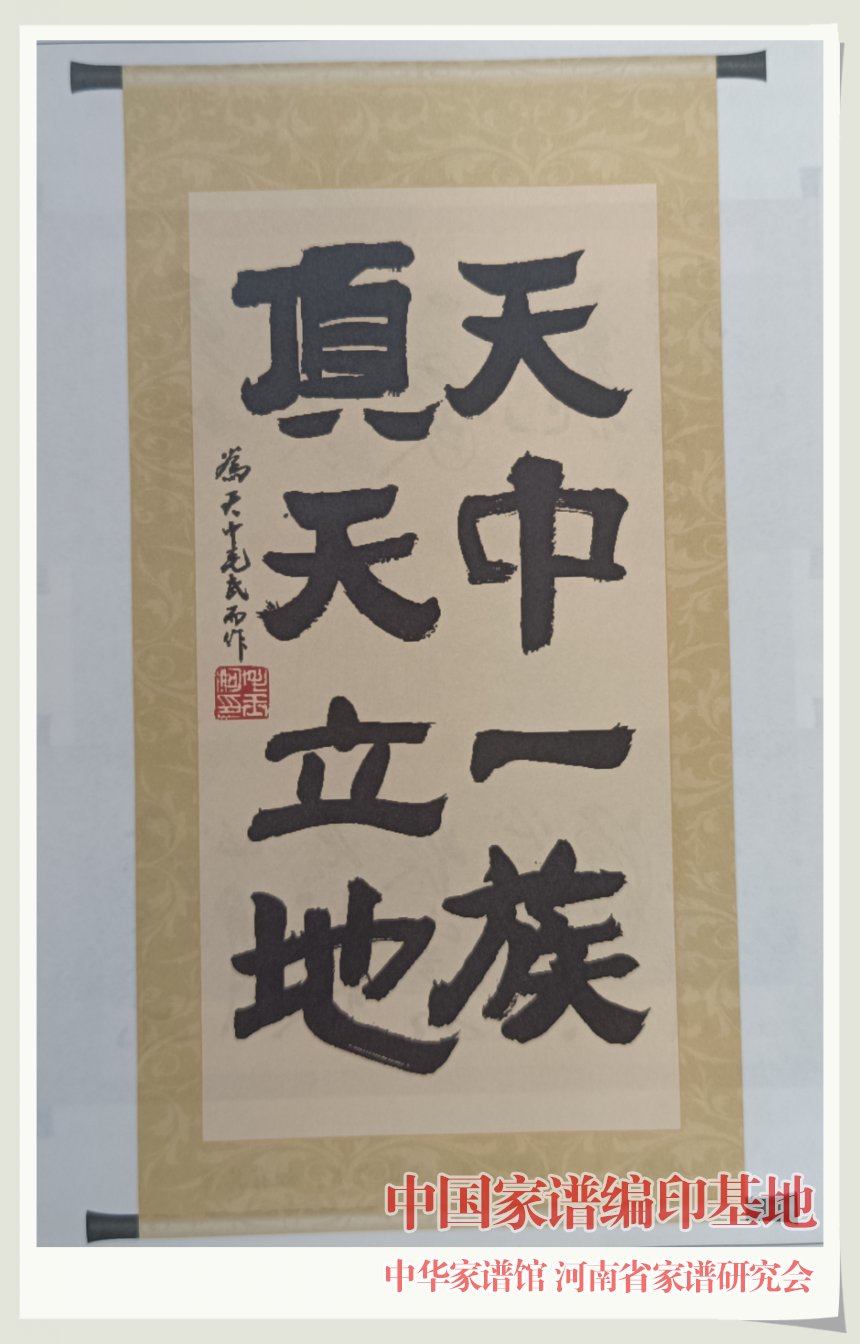 天中一族
頂天立地
為天中毛氏而作
中国家谱编印基地
中华家谱馆 河南省家谱研究会